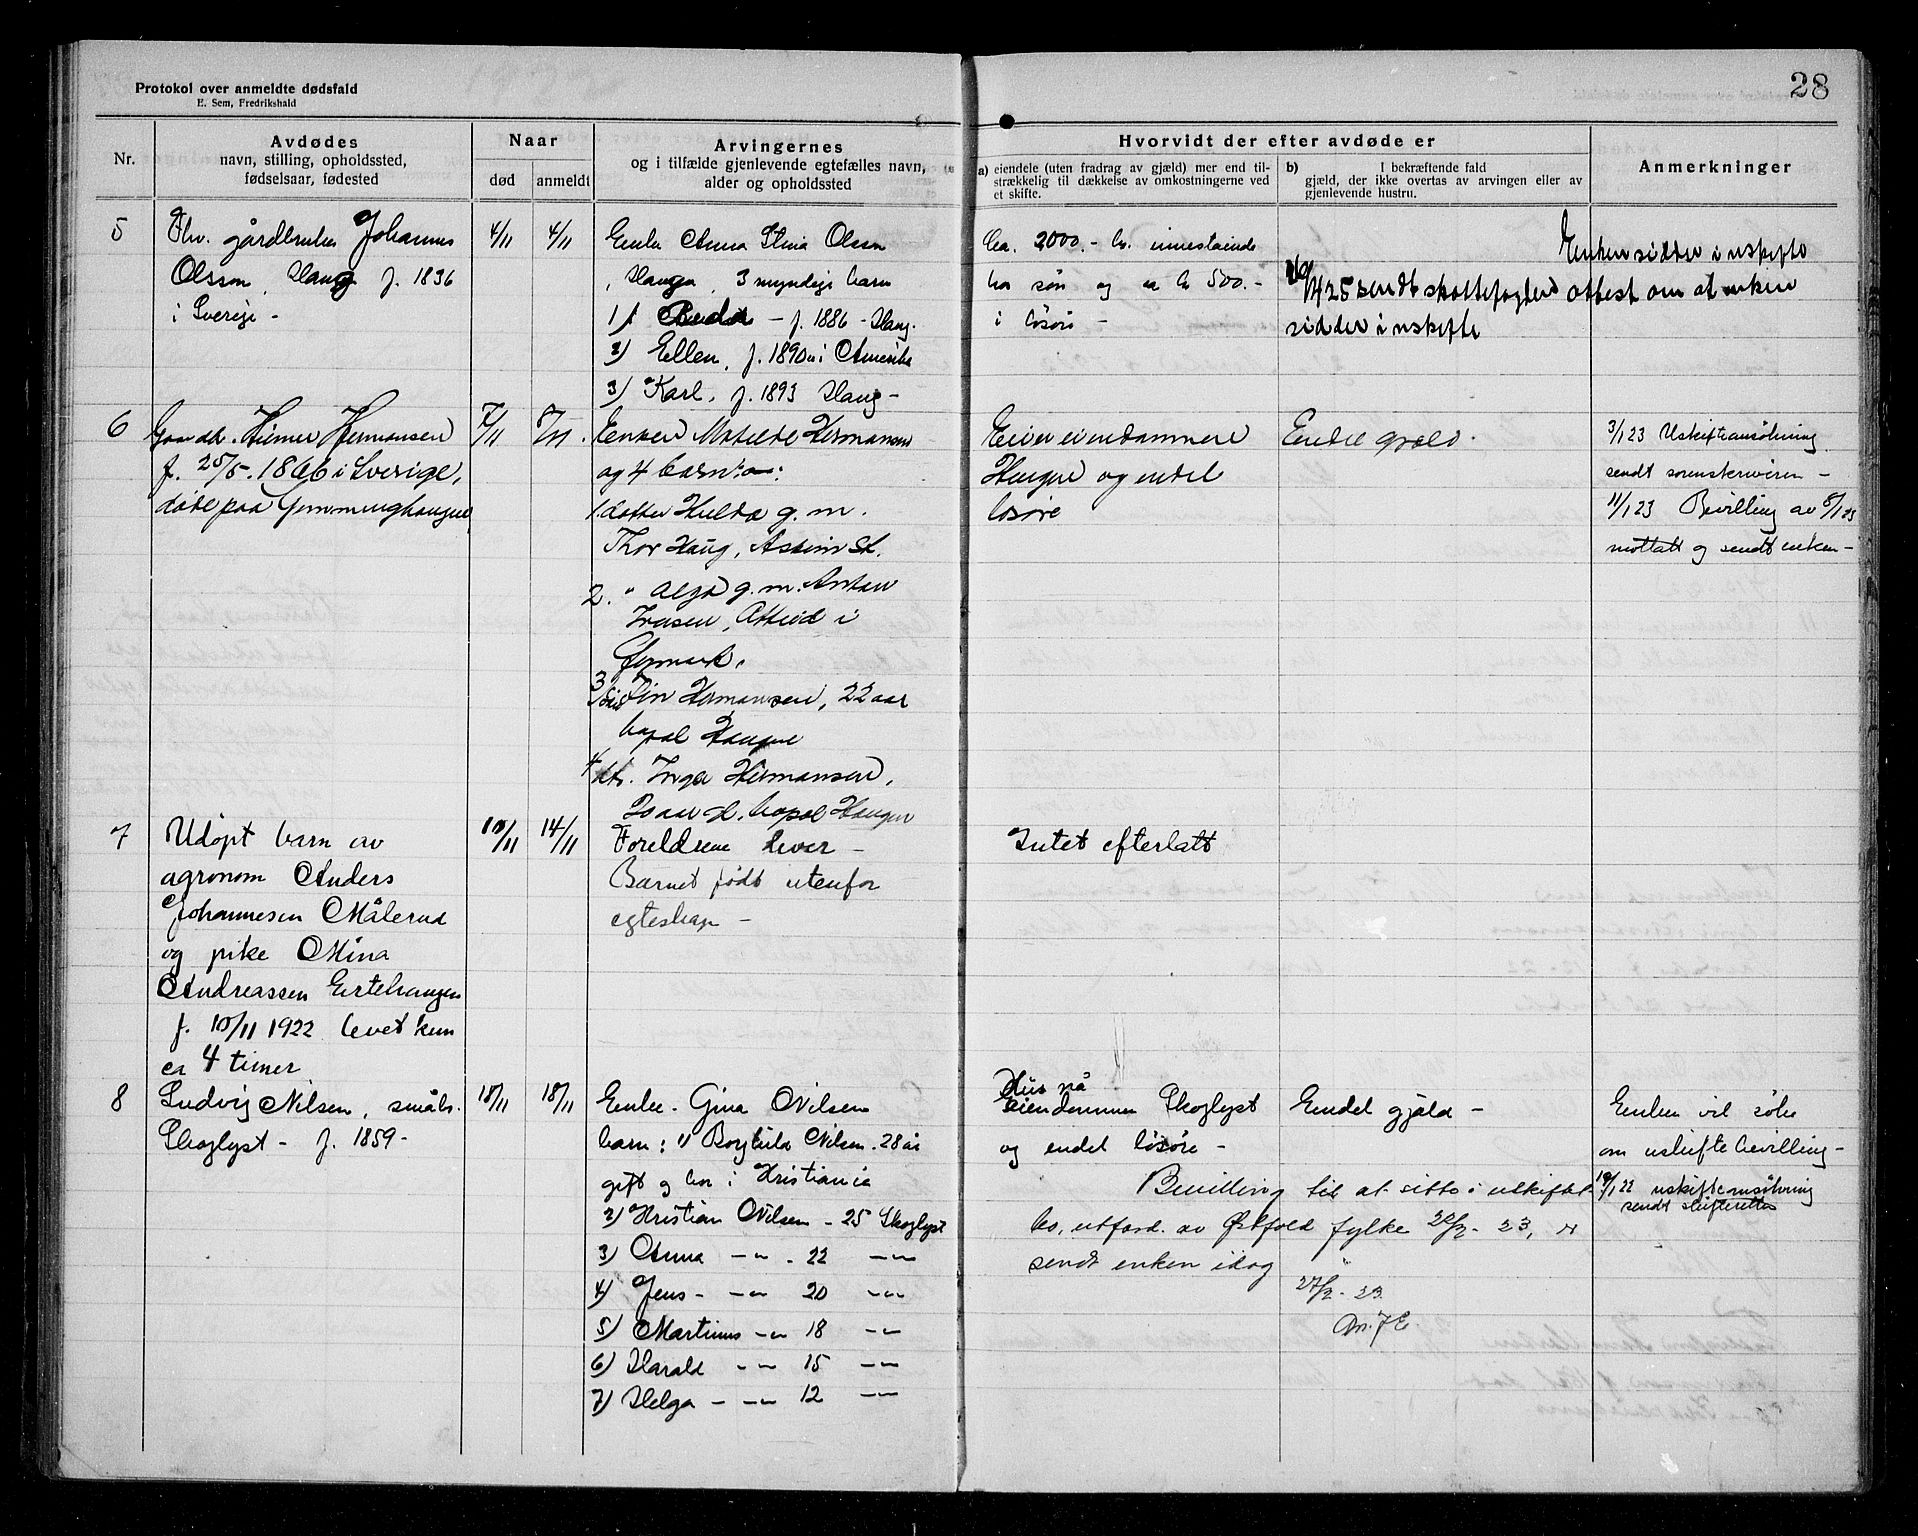 28
Protokol over anmeldte dødsfald
E. Sem, Fredrikshald
Nr.
Avdødes
navn, stilling, opholdssted,
fødselsaar, fødested
Naar
død
anmeldt
Arvingernes
og i tilfælde gjenlevende egtefælles navn,
alder og opholdssted
Hvorvidt der efter avdøde er
a) eiendele (uten fradrag av gjæld) mer end til-
strækkelig til dækkelse av omkostningerne ved
et skifte.
b) I bekræftende fald
gjæld, der ikke overtas av arvingen eller av
gjenlevende hustru.
Anmerkninger
5
Fhv. gårdbruker Johannes
Olsson, Haug f. 1836
i Sverige -
4/11
4/11
Enke Anna Stina Olsson
, Haugen, 3 myndige barn
1) - f. 1886 - Haug.
2) Ellen, f. 1890 i Amerika
3) Karl, f. 1893 Haug -
Ca. 2000.- kr. innestående
hos søn og ca kr 500.-
i løsøre -
Enken sidder i uskifte
/4 25 sendt skattefogden attest om at enken
sidder i uskifte
6
Gaardbr. Hilmer Hermansen
f. 25/5. 1866 i Sverige,
døde paa
7/11
8/11
Enken Matilde Hermansen
og 4 barn:
1 datter Hulda g. m.
Thor Haug, Askim St.
2. " Alga g. m. Anton
i
3/ Søn Finn Hermansen, 22 aar
bopæl Haugen
4 dtr. Inga Hermansen,
bopæl Haugen
Eier eiendommen
Haugen og endel
løsøre
Endel gjæld.
3/1 23 Uskifteansökning
sendt sorenskriveren -
11/1 23 Bevilling av 8/1 23
mottatt og sendt enken -
7
Udöpt barn av
agronom Anders
Johannesen Målerud
og pike Mina
Andreassen Ertehaugen
f. 10/11 1922 levet kun
ca 4 timer
10/11
14/11
Foreldrene lever -
Barnet födt utenfor
egteskap -
Intet efterlatt
8
Ludvig Nilsen, småbr.
Skoglyst - f. 1859 -
18/11
Enke. Gina Nilsen
barn: 1) Borghild Nilsen. 28 år
gift og bor i Kristiania
2) Kristian Nilsen - 25 Skoglyst
3) Anna -"- . 22 -"-
4) Jens - -"- 20 -"-
5) Martinus -"- 18 -"-
6) Harald -"- 15 -"-
7) Helga - -"- 12 -"-
Hus på
eiendommen Skoglyst
og endel lösöre -
Endel gjäld -
Enken vil söke
om uskiftebevilling -
/1 22 uskifteansökning
sendt skifteretten
Bevilling til at sitte i uskiftet
bo, utfærd. av Østfold fylke 22/2 - 23, er
sendt enken idag
27/2 - 23.